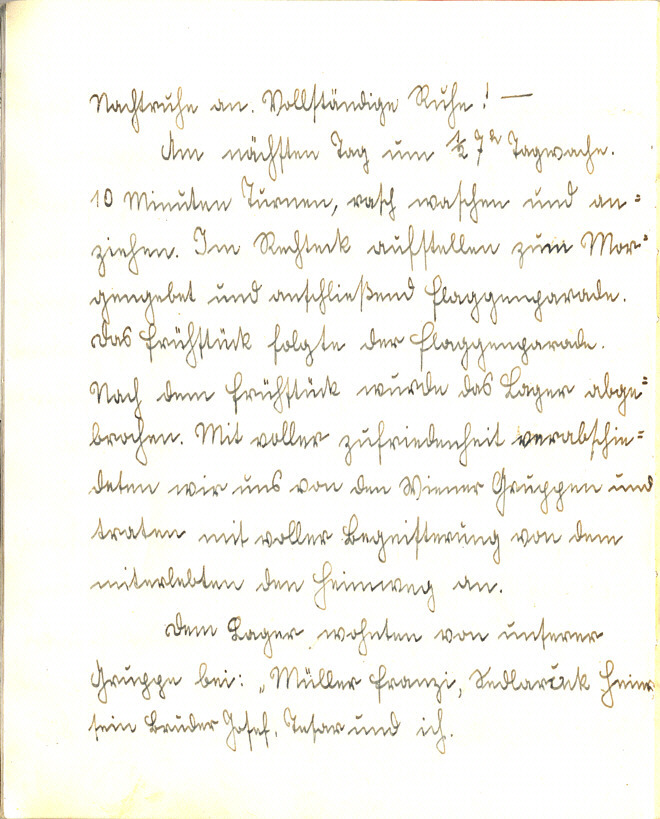 Nachtruhe an. Vollständige Ruhe! —
Am nächsten Tag um ½ 7ʰ Tagwache.
10 Minuten Turnen, rasch waschen und an=
ziehen. Im Rechteck aufstellen zum Mor=
gengebet und anschließend Flaggenparade.
Das Frühstück folgte der Flaggenparade.
Nach dem Frühstück wurde das Lager abge=
brochen. Mit voller Zufriedenheit verabschie=
deten wir uns von den Wiener Gruppen und
traten mit voller Begeisterung von dem
miterlebten den Heimweg an.
Dem Lager wohnten von unserer
Gruppe bei: „Müller Franzi, Sedlaricek
sein Bruder Josef, Tesar und ich.